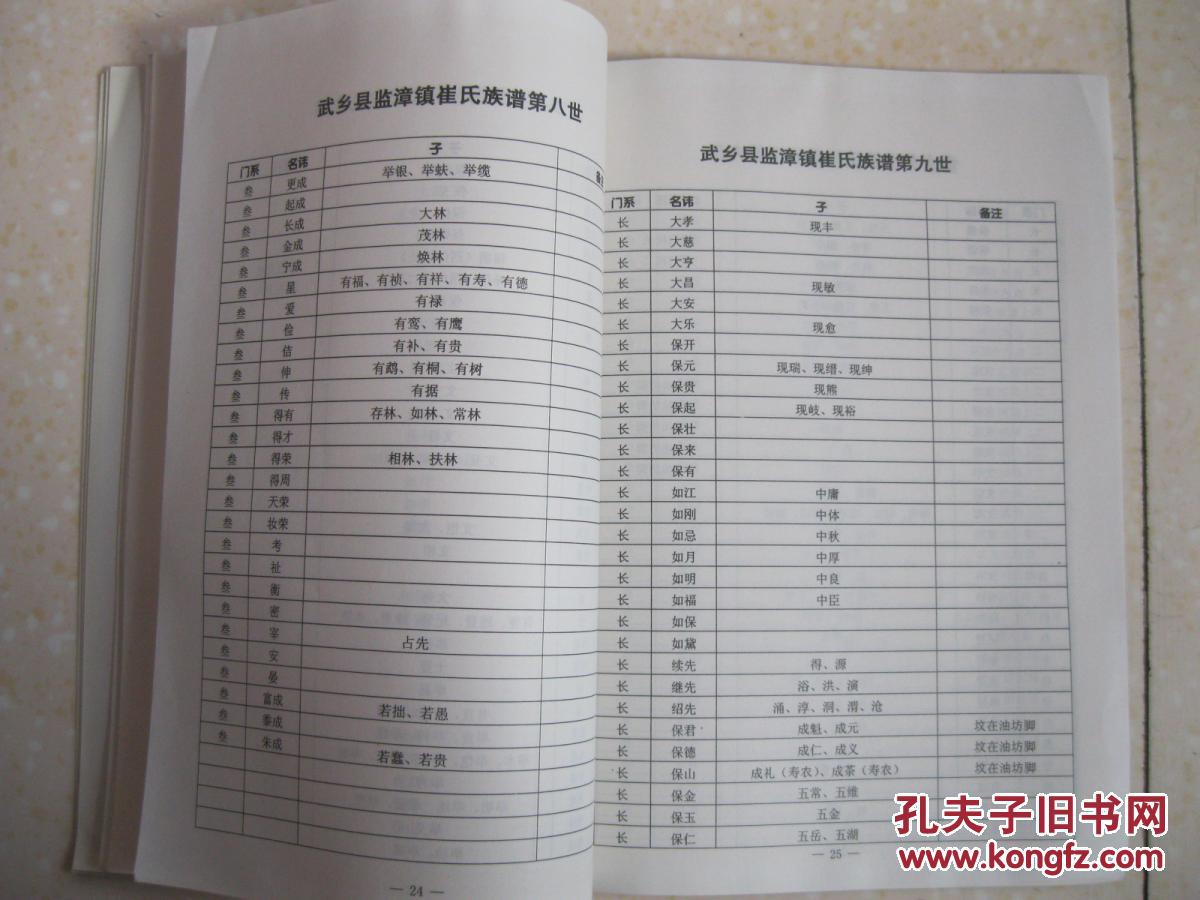 武乡县监漳镇崔氏族谱第八世
门系 名讳 子 备
叁 更成 举银、举蚨、举缆
叁 起成
叁 长成 大林
叁 金成 茂林
叁 宁成 焕林
叁 星 有福、有祯、有祥、有寿、有德
叁 爱 有禄
叁 俭 有鸾、有鹰
叁 佶 有补、有贵
叁 伸 有鹉、有桐、有树
叁 传 有据
叁 得有 存林、如林、常林
叁 得才
叁 得荣 相林、扶林
叁 得周
叁 天荣
叁 妆荣
叁 考
叁 祉
叁 衡
叁 密
叁 宰 占先
叁 安
叁 晏
叁 富成 若拙、若愚
叁 黍成
叁 朱成 若蠢、若贵
— 24 —
武乡县监漳镇崔氏族谱第九世
门系 名讳 子 备注
长 大孝 现丰
长 大慈
长 大亨
长 大昌 现敏
长 大安
长 大乐 现愈
长 保开
长 保元 现瑞、现缙、现绅
长 保贵 现熊
长 保起 现岐、现裕
长 保壮
长 保来
长 保有
长 如江 中庸
长 如刚 中体
长 如忌 中秋
长 如月 中厚
长 如明 中良
长 如福 中臣
长 如保
长 如黛
长 续先 得、源
长 继先 浴、洪、演
长 绍先 涌、淳、洞、渭、沧
长 保君 成魁、成元 坟在油坊脚
长 保德 成仁、成义 坟在油坊脚
长 保山 成礼（寿农）、成茶（寿农） 坟在油坊脚
长 保金 五常、五维
长 保玉 五金
长 保仁 五岳、五湖
— 25 —
孔夫子旧书网
www.kongfz.com